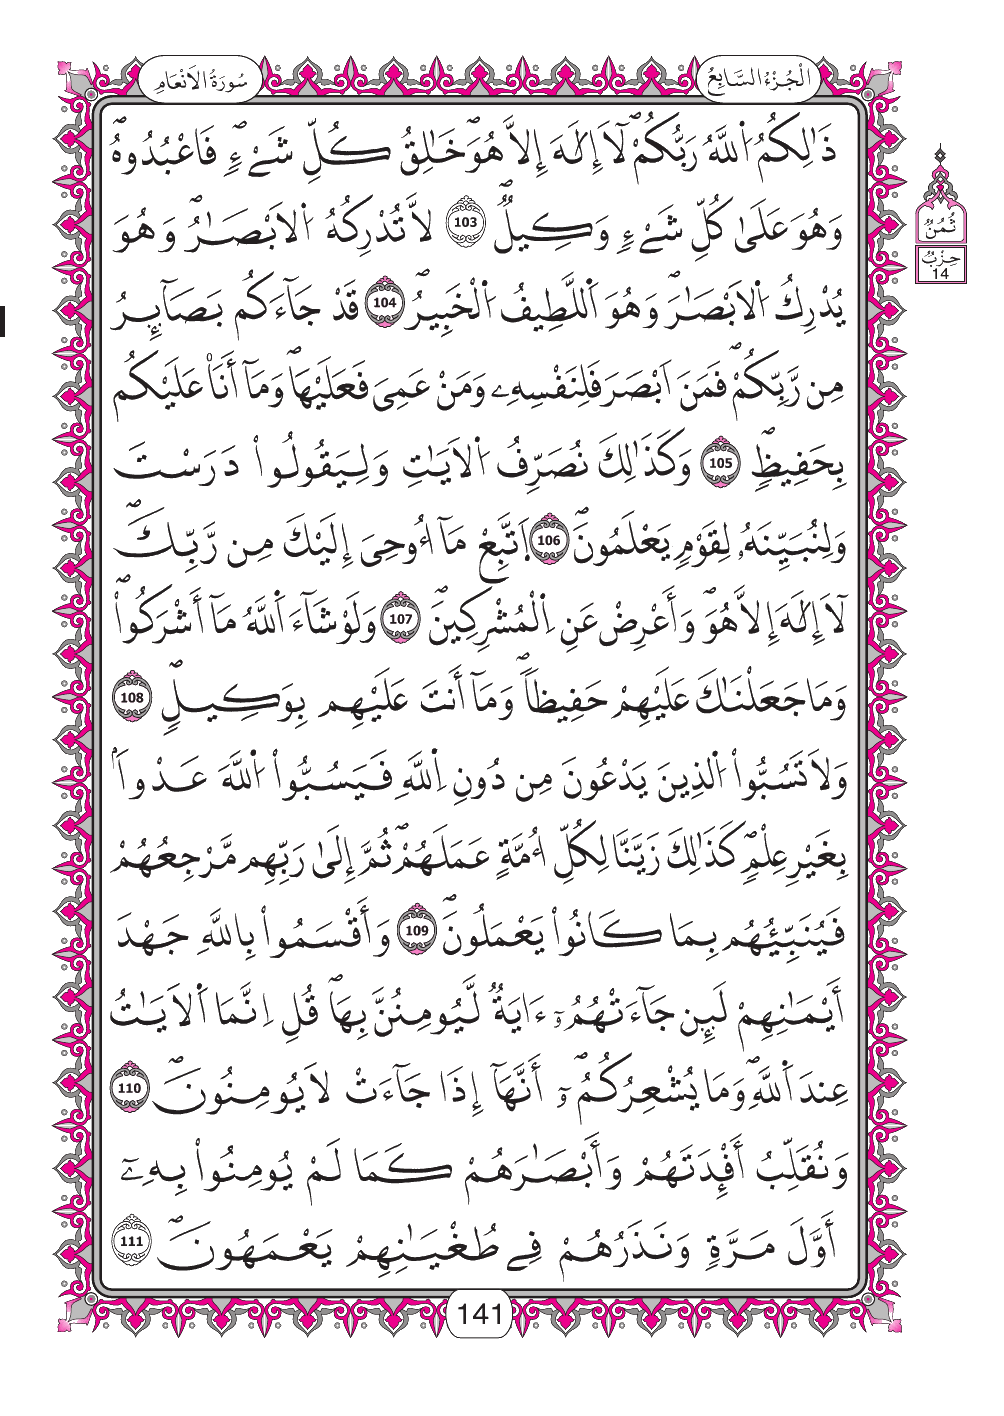 الْجُزْءُ السَّابِعُ
سُورَةُ الاَنْعَامِ
ذَٰلِكُمُ اُ۬للَّهُ رَبُّكُمْۖ لَآ إِلَٰهَ إِلَّا هُوَۖ خَٰلِقُ كُلِّ شَےْءٖۖ فَاعْبُدُوهُۖ
ثُمُنُ
وَهُوَ عَلَىٰ كُلِّ شَےْءٖ وَكِيلٌۖ 103 لَّا تُدْرِكُهُ اُ۬لَابْصَٰرُۖ وَهُوَ
حِزْبُ
14
يُدْرِكُ اُ۬لَابْصَٰرَۖ وَهُوَ اَ۬للَّطِيفُ اُ۬لْخَبِيرُۖ 104 قَدْ جَآءَكُم بَصَآئِرُ
مِن رَّبِّكُمْۖ فَمَنَ اَبْصَرَ فَلِنَفْسِهِۦ وَمَنْ عَمِىَ فَعَلَيْهَاۖ وَمَآ أَنَا۠ عَلَيْكُم
بِحَفِيظٖۖ 105 وَكَذَٰلِكَ نُصَرِّفُ اُ۬لَايَٰتِ وَلِيَقُولُواْ دَرَسْتَ
وَلِنُبَيِّنَهُۥ لِقَوْمٖ يَعْلَمُونَۖ 106 اَ۪تَّبِعْ مَآ أُوحِىَ إِلَيْكَ مِن رَّبِّكَۖ
لَآ إِلَٰهَ إِلَّا هُوَۖ وَأَعْرِضْ عَنِ اِ۬لْمُشْرِكِينَۖ 107 وَلَوْ شَآءَ اَ۬للَّهُ مَآ أَشْرَكُواْۖ
وَمَا جَعَلْنَٰكَ عَلَيْهِمْ حَفِيظاٗۖ وَمَآ أَنتَ عَلَيْهِم بِوَكِيلٖۖ 108
وَلَا تَسُبُّواْ اُ۬لذِينَ يَدْعُونَ مِن دُونِ اِ۬للَّهِ فَيَسُبُّواْ اُ۬للَّهَ عَدْواَۢ
بِغَيْرِ عِلْمٖۖ كَذَٰلِكَ زَيَّنَّا لِكُلِّ أُمَّةٍ عَمَلَهُمْۖ ثُمَّ إِلَىٰ رَبِّهِم مَّرْجِعُهُمْ
فَيُنَبِّئُهُم بِمَا كَانُواْ يَعْمَلُونَۖ 109 وَأَقْسَمُواْ بِاللَّهِ جَهْدَ
أَيْمَٰنِهِمْ لَئِن جَآءَتْهُمُۥٓ ءَايَةٌ لَّيُومِنُنَّ بِهَاۖ قُلِ اِنَّمَا اَ۬لَايَٰتُ
عِندَ اَ۬للَّهِۖ وَمَا يُشْعِرُكُمُۥٓۖ أَنَّهَآ إِذَا جَآءَتْ لَا يُومِنُونَۖ 110
وَنُقَلِّبُ أَفْـِٕدَتَهُمْ وَأَبْصَٰرَهُمْ كَمَا لَمْ يُومِنُواْ بِهِۦٓ
أَوَّلَ مَرَّةٖ وَنَذَرُهُمْ فِے طُغْيَٰنِهِمْ يَعْمَهُونَۖ 111
141